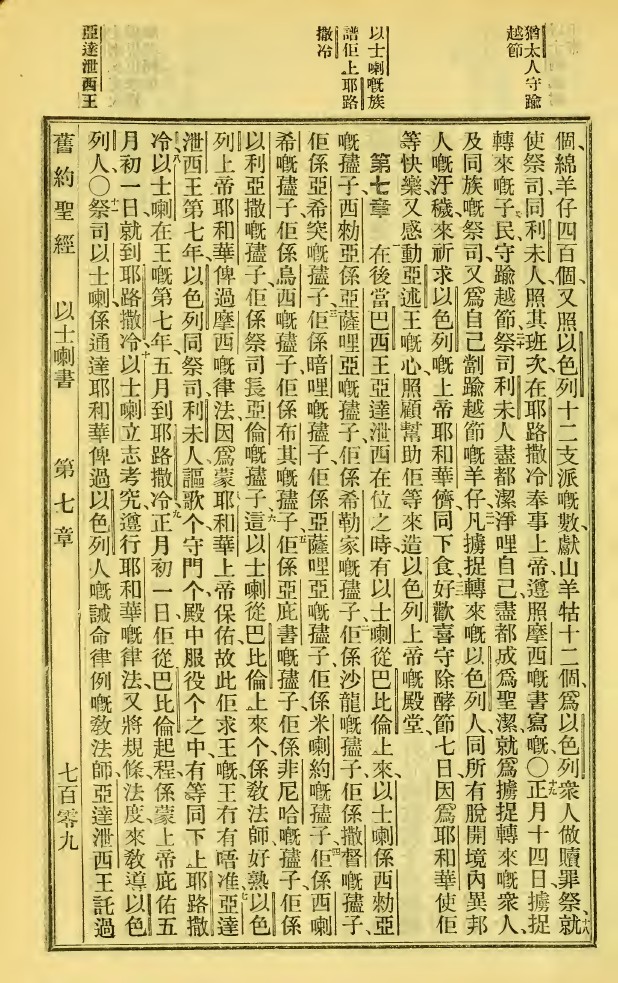 猶太人守踰
越節
以士喇嘅族
譜佢上耶路
撒冷
亞達泄西王
個、綿羊仔四百個、又照以色列十二支派嘅數、獻山羊牯十二個、爲以色列衆人做贖罪祭、就十八
使祭司同利未人、照其班次、在耶路撒冷奉事上帝、遵照摩西嘅書寫嘅、〇十九正月十四日、擄捉
轉來嘅子民守踰越節、二十祭司利未人盡都潔淨哩自己、盡都成爲聖潔、就爲擄捉轉來嘅衆人、
及同族嘅祭司、又爲自己劏踰越節嘅羊仔、二一凡擄捉轉來嘅以色列人、同所有脫開境內異邦
人嘅汙穢、來祈求以色列嘅上帝耶和華儕、同下食、二二好歡喜守除酵節七日、因爲耶和華使佢
等快樂、又感動亞述王嘅心、照顧幫助佢等來造以色列上帝嘅殿堂、
第七章 一在後當巴西王亞達泄西在位之時、有以士喇從巴比倫上來、以士喇係西勑亞
嘅孻子、西勑亞係亞薩哩亞嘅孻子、佢係希勒家嘅孻子、二佢係沙龍嘅孻子、佢係撒督嘅孻子、
佢係亞希突嘅孻子、三佢係暗哩嘅孻子、佢係亞薩哩亞嘅孻子、佢係米喇約嘅孻子、四佢係西喇
希嘅孻子、佢係烏西嘅孻子、佢係布其嘅孻子、五佢係亞庇書嘅孻子、佢係非尼哈嘅孻子、佢係
以利亞撒嘅孻子、佢係祭司長亞倫嘅孻子、六這以士喇從巴比倫上來个、係敎法師、好熟以色
列上帝耶和華俾過摩西嘅律法、因爲蒙耶和華上帝保佑、故此佢求王嘅、王冇有唔准、七亞達
泄西王第七年、以色列同祭司利未人、謳歌个、守門个、殿中服役个之中、有等同下上耶路撒
冷、八以士喇在王嘅第七年五月到耶路撒冷、九正月初一日、佢從巴比倫起程、係蒙上帝庇佑、五
月初一日、就到耶路撒冷、十以士喇立志考究遵行耶和華嘅律法、又將規條法度、來敎導以色
列人、〇十一祭司以士喇、係通達耶和華俾過以色列人嘅誡命律例嘅敎法師、亞達泄西王託過
舊約聖經 以士喇書 第七章 七百零九